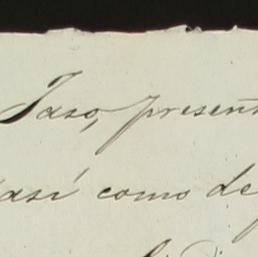 Jaso, presen
así como de